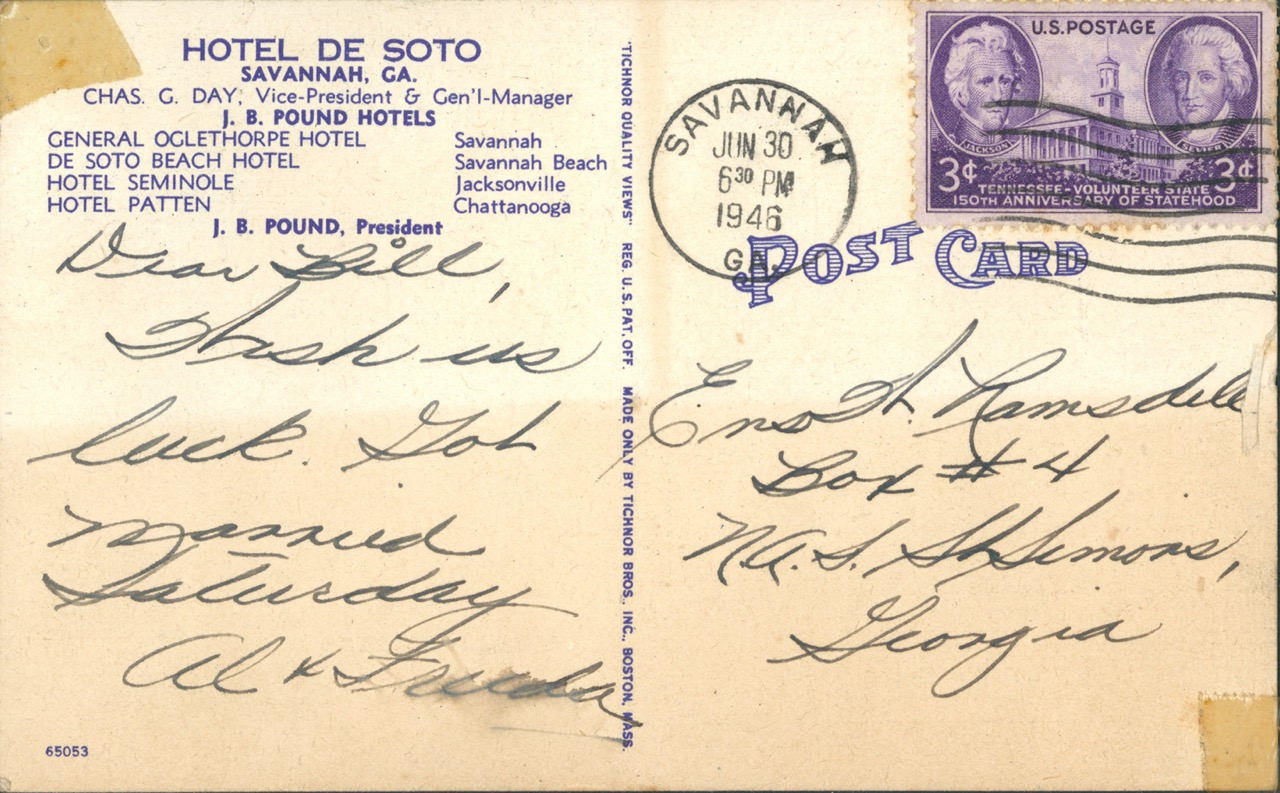 HOTEL DE SOTO
SAVANNAH, GA.
CHAS. G. DAY, Vice-President & Gen'l-Manager
J. B. POUND HOTELS
GENERAL OGLETHORPE HOTEL Savannah
DE SOTO BEACH HOTEL Savannah Beach
HOTEL SEMINOLE Jacksonville
HOTEL PATTEN Chattanooga
J. B. POUND, President
Dear Bill,
Wish us
luck. Got
married
Saturday
Al & Frieda
65053
"TICHNOR QUALITY VIEWS" REG. U. S. PAT. OFF. MADE ONLY BY TICHNOR BROS., INC., BOSTON, MASS.
SAVANNAH
JUN 30
6 30 PM
1946
GA.
U.S. POSTAGE
JACKSON
SEVIER
3¢ 3¢
TENNESSEE-VOLUNTEER STATE
150TH ANNIVERSARY OF STATEHOOD
POST CARD
Ens W. Ramsdell
Box # 4
N.A.S. St Simons,
Georgia